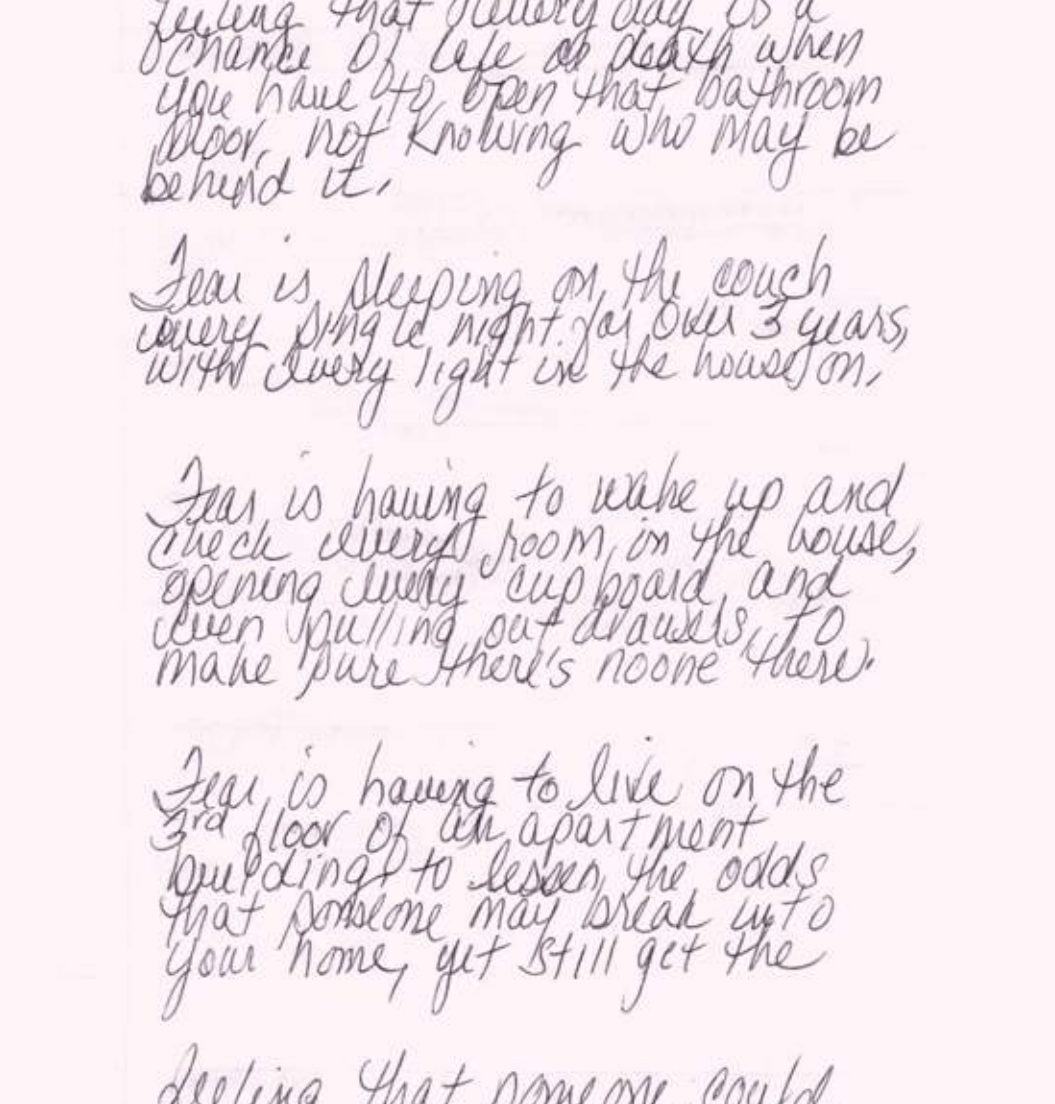 feeling that every day is a
chance of life or death when
you have to open that bathroom
door, not knowing who may be
behind it.
Fear is sleeping on the couch
every single night for over 3 years,
with every light in the house on.
Fear is having to wake up and
check every room in the house,
opening every cupboard, and
even pulling out drawers, to
make sure there's noone there.
Fear is having to live on the
3rd floor of an apartment
building to lessen the odds
that someone may break into
your home, yet still get the
feeling that someone could